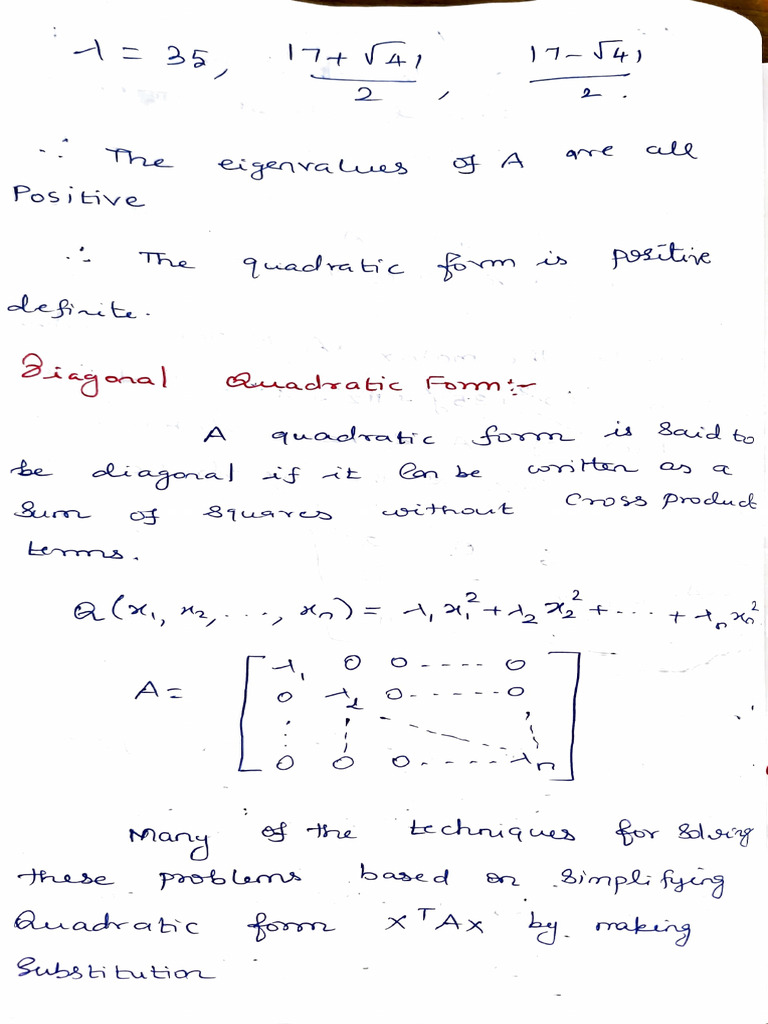 λ = 35, (17+√41)/2, (17-√41)/2.
∴ The eigenvalues of A are all
Positive
∴ The quadratic form is positive
definite.
Diagonal Quadratic Form:-
A quadratic form is said to
be diagonal if it can be written as a
sum of squares without cross product
terms.
Q(x₁, x₂, ..., xₙ) = λ₁x₁² + λ₂x₂² + ... + λₙxₙ²
A = [
λ₁ 0 0 ---- 0
0 λ₂ 0 ------ 0
⋮ ⋮ ⋱ ⋮
0 0 0 ----- λₙ
]
Many of the techniques for solving
these problems based on simplifying
Quadratic form XᵀAX by making
Substitution